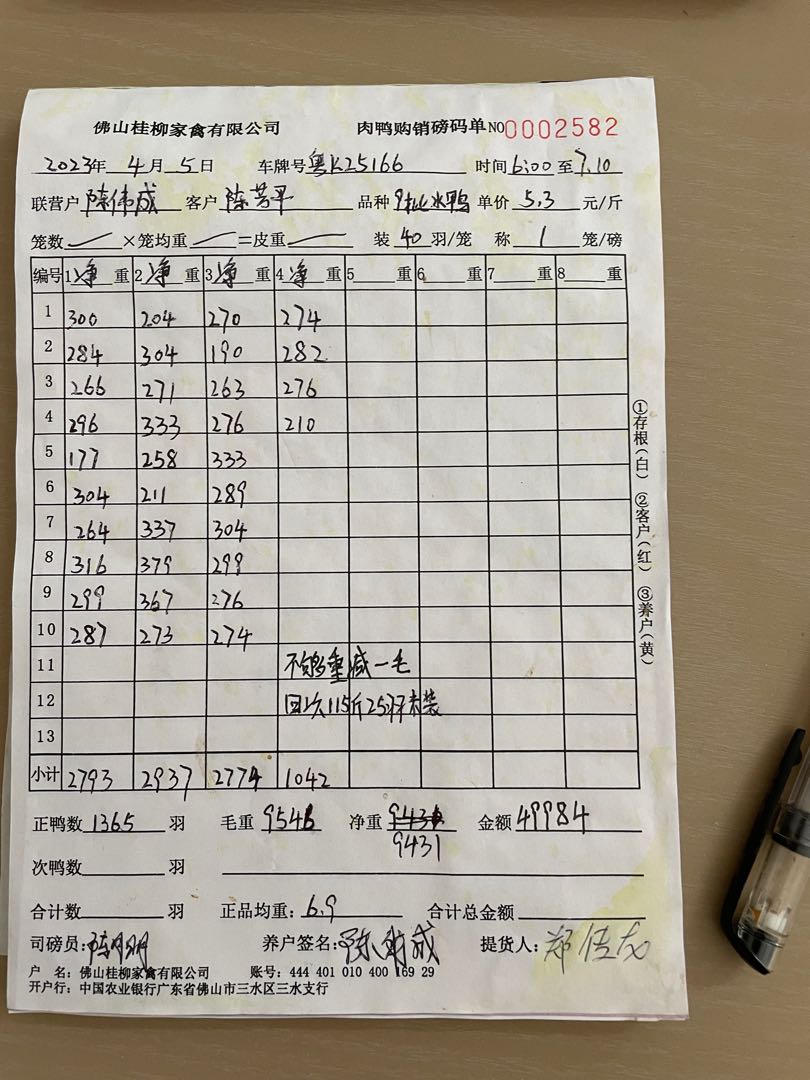 佛山桂柳家禽有限公司 肉鸭购销磅码单 NO 0002582
2023年 4月 5日 车牌号 粤K25166 时间 6:00 至 7.10
联营户 陈伟成 客户 陈芳平 品种 单价 5.3 元/斤
笼数 ×笼均重 =皮重 装 40 羽/笼 称 1 笼/磅
编号 1净重 2净重 3净重 4净重 5 重 6 重 7 重 8 重
1 300 204 270 274
2 284 304 190 282
3 266 271 263 276
4 296 333 276 210
5 177 258 333
6 304 211 289
7 264 337 304
8 316 379 299
9 299 367 276
10 287 273 274
11 不够重减一毛
12 回次115斤25羽未装
13
小计 2793 2937 2774 1042
正鸭数 1365 羽 毛重 9546 净重 9431 金额 49984
次鸭数 羽
合计数 羽 正品均重: 6.9 合计总金额
司磅员: 养户签名: 提货人:
户 名: 佛山桂柳家禽有限公司 账号: 444 401 010 400 169 29
开户行: 中国农业银行广东省佛山市三水区三水支行
①存根(白) ②客户(红) ③养户(黄)